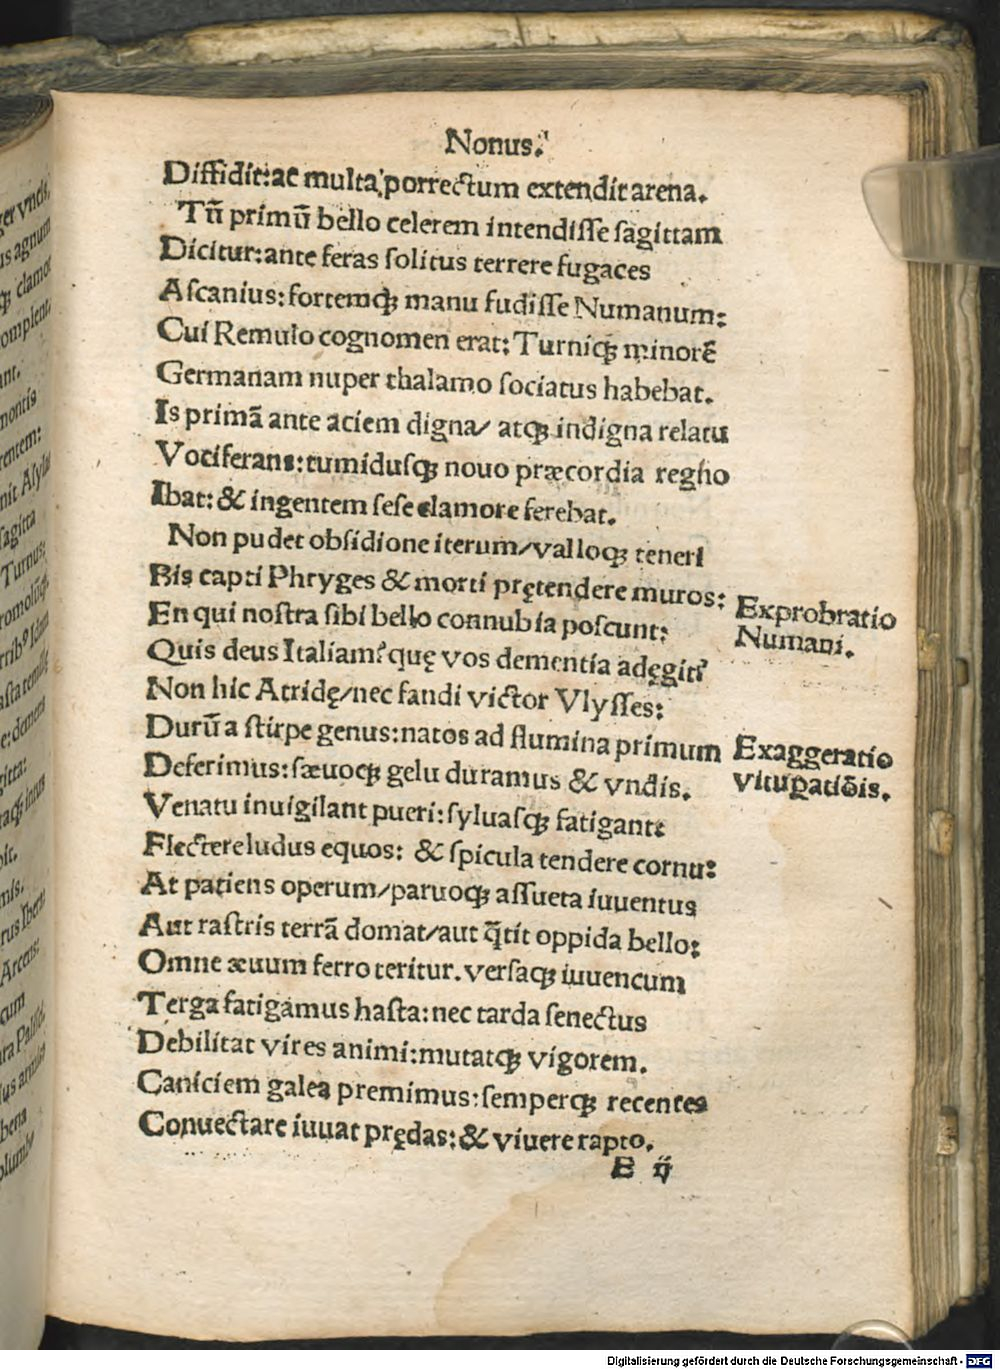 Nonus.
Diffidit:ac multa porrectum extendit arena.
Tū primū bello celerem intendisse sagittam
Dicitur:ante feras solitus terrere fugaces
Ascanius:fortemqꝫ manu fudisse Numanum:
Cui Remulo cognomen erat:Turniqꝫ minorē
Germanam nuper thalamo sociatus habebat.
Is primā ante aciem digna/ atqꝫ indigna relatu
Vociferans:tumidusqꝫ nouo præcordia regno
Ibat:& ingentem sese clamore ferebat.
Non pudet obsidione iterum/valloqꝫ teneri
Bis capti Phryges & morti prętendere muros:
En qui nostra sibi bello connubia poscunt:
Quis deus Italiam?quę vos dementia adęgit?
Non hic Atridę/nec fandi victor Vlysses:
Durū a stirpe genus:natos ad flumina primum
Deferimus:sæuoqꝫ gelu duramus & vndis.
Venatu inuigilant pueri:syluasqꝫ fatigant:
Flectere ludus equos: & spicula tendere cornu:
At patiens operum/paruoqꝫ assueta iuuentus
Aut rastris terrā domat/aut q̄tit oppida bello:
Omne æuum ferro teritur.versaqꝫ iuuencum
Terga fatigamus hasta:nec tarda senectus
Debilitat vires animi:mutatqꝫ vigorem.
Caniciem galea premimus:semperqꝫ recentes
Conuectare iuuat prędas:& viuere rapto.
E ij
Exprobratio
Numani.
Exaggeratio
vituꝑatiōis.
ger vncis,
us agnum
qꝫ clamor
omplent
ant.
montis
rentem:
nit Asylas
sagitta
Turnus:
romolūqꝫ
Arcens:
cum
bena
plumbo
Digitalisierung gefördert durch die Deutsche Forschungsgemeinschaft - DFG